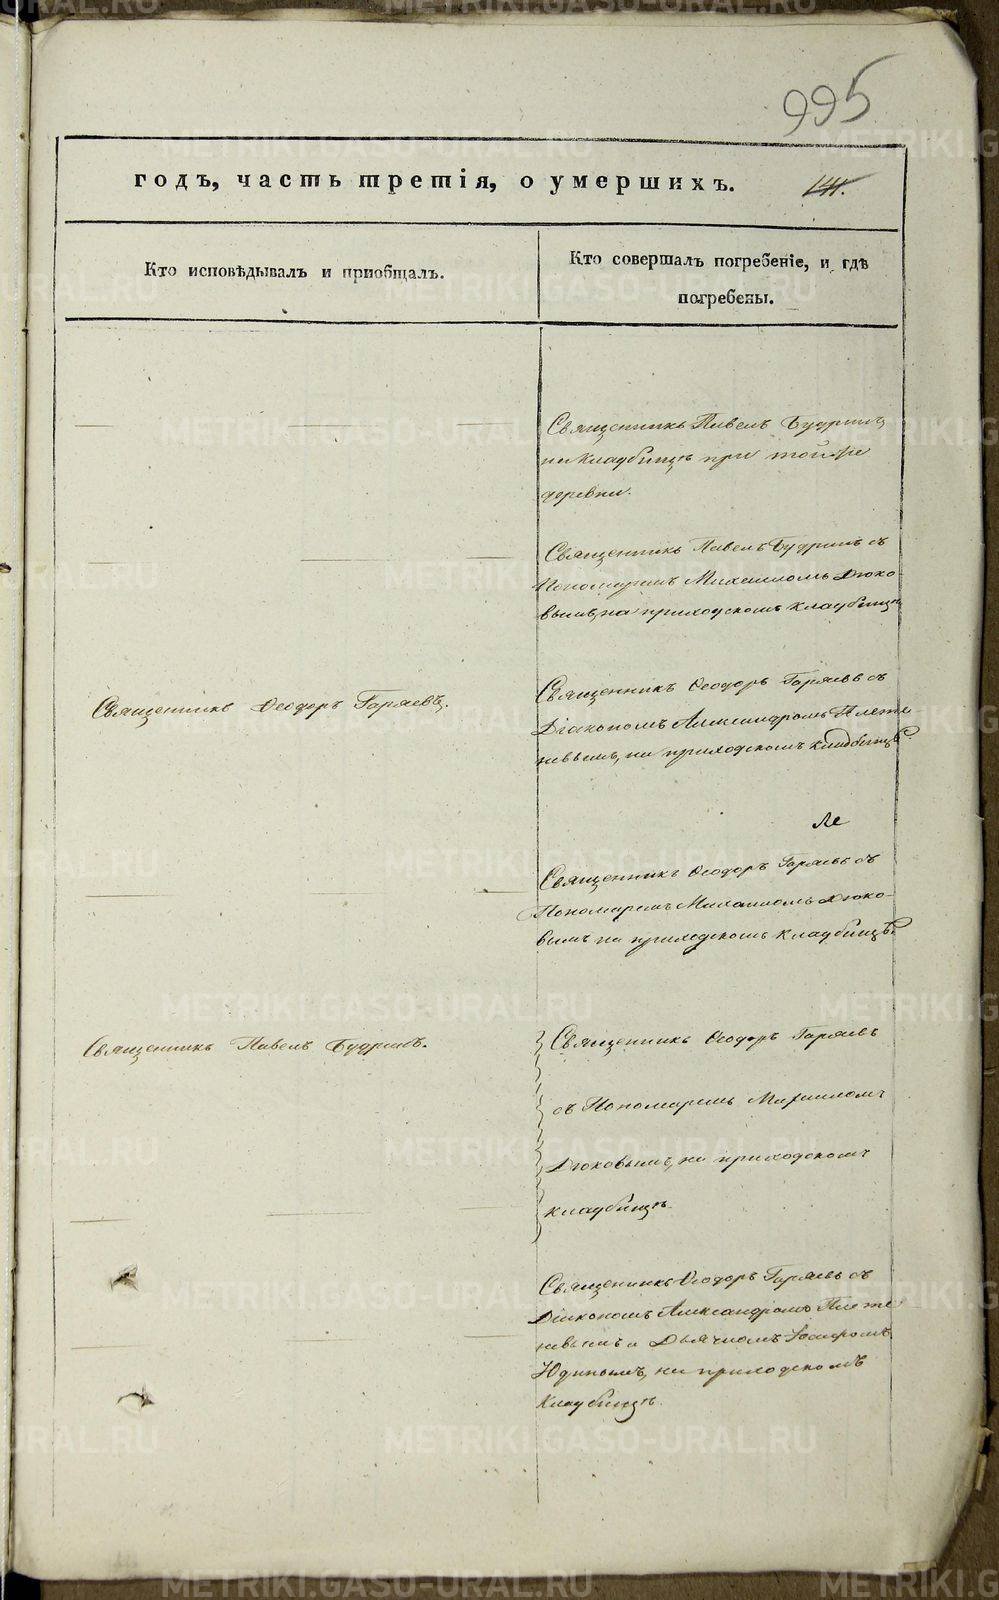 995
годъ, часть третія, о умершихъ.
Кто исповѣдывалъ и приобщалъ.
Кто совершалъ погребеніе, и гдѣ
погребены.
Священникъ Павелъ Будринъ
на кладбищѣ при той же
деревни.
Священникъ Павелъ Будринъ съ
Пономаремъ Михаиломъ Дюко-
вымъ, на приходскомъ кладбищѣ
Священникъ Ѳеодоръ Гаряевъ.
Священникъ Ѳеодоръ Гаряевъ съ
Діакономъ Александромъ Плете
невымъ, на приходскомъ кладбищѣ.
Священникъ Ѳеодоръ Гаряевъ съ
Пономаремъ Михаиломъ Дюко-
вымъ на приходскомъ кладбищѣ.
Священникъ Павелъ Будринъ.
Священникъ Ѳеодоръ Гаряевъ
съ Пономаремъ Михаиломъ
Дюковымъ, на приходскомъ
кладбищѣ.
Священникъ Ѳеодоръ Гаряевъ съ
Діакономъ Александромъ Плете
невымъ и Дьячкомъ
Юдинымъ, на приходскомъ
кладбищѣ.
METRIKI.GASO-URAL.RU